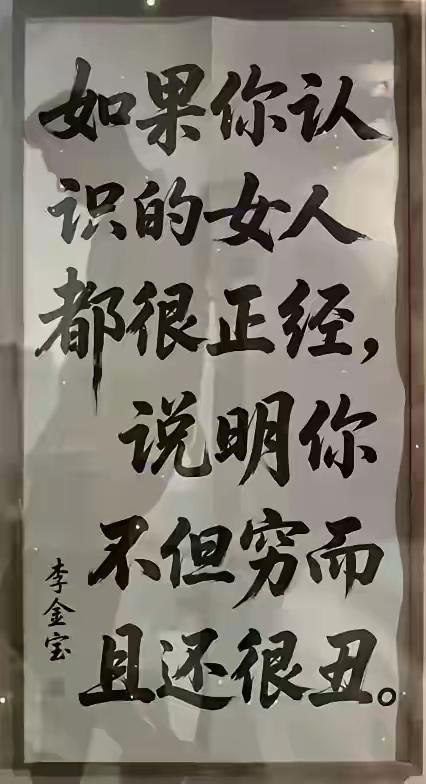 如果你认
识的女人
都很正经，
说明你
不但穷而
且还很丑。
李金宝